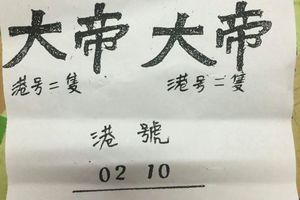 大帝 大帝
港号二隻 港号二隻
港號
02 10